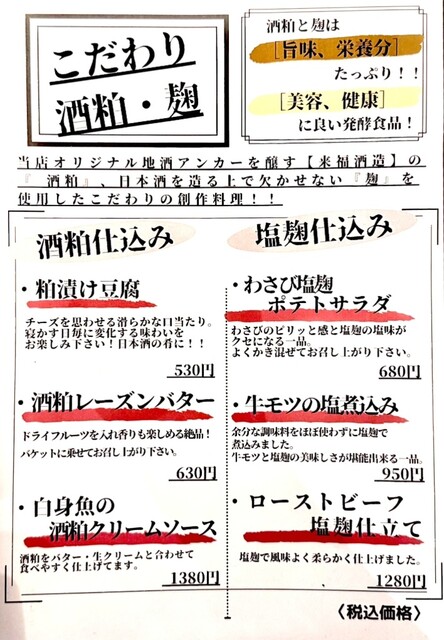 こだわり
酒粕・麹
酒粕と麹は
[旨味、栄養分]
たっぷり！！
[美容、健康]
に良い発酵食品！
当店オリジナル地酒アンカーを醸す【来福酒造】の
『 酒粕』、日本酒を造る上で欠かせない『麹』を
使用したこだわりの創作料理！！
酒粕仕込み
・粕漬け豆腐
チーズを思わせる滑らかな口当たり。
寝かす日毎に変化する味わいを
お楽しみ下さい！日本酒の肴に！！
530円
・酒粕レーズンバター
ドライフルーツを入れ香りも楽しめる絶品！
バケットに乗せてお召し上がり下さい。
630円
・白身魚の
酒粕クリームソース
酒粕をバター・生クリームと合わせて
食べやすく仕上げてます。
1380円
塩麹仕込み
・わさび塩麹
ポテトサラダ
わさびのピリッと感と塩麹の塩味が
クセになる一品。
よくかき混ぜてお召し上がり下さい。
680円
・牛モツの塩煮込み
余分な調味料をほぼ使わずに塩麹で
煮込みました。
牛モツと塩麹の美味しさが堪能出来る一品。
950円
・ローストビーフ
塩麹仕立て
塩麹で風味よく柔らかく仕上げました。
1280円
〈税込価格〉